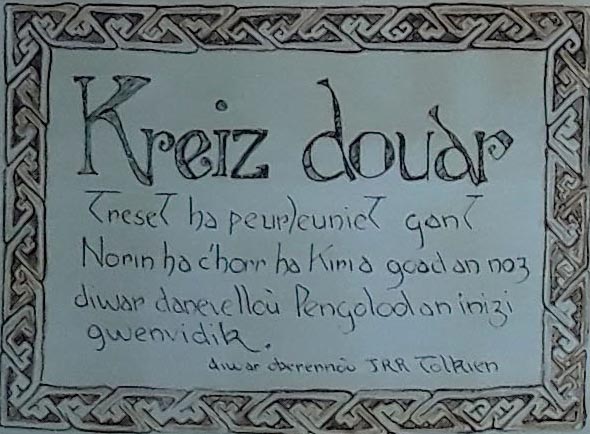 Kreiz douar
Treset ha peurleuniet gant
Norin ha c'horr ha Kiria goad an noz
diwar danevelloù Pengolod an inizi
gwenvidik.
diwar oberennoù JRR Tolkien